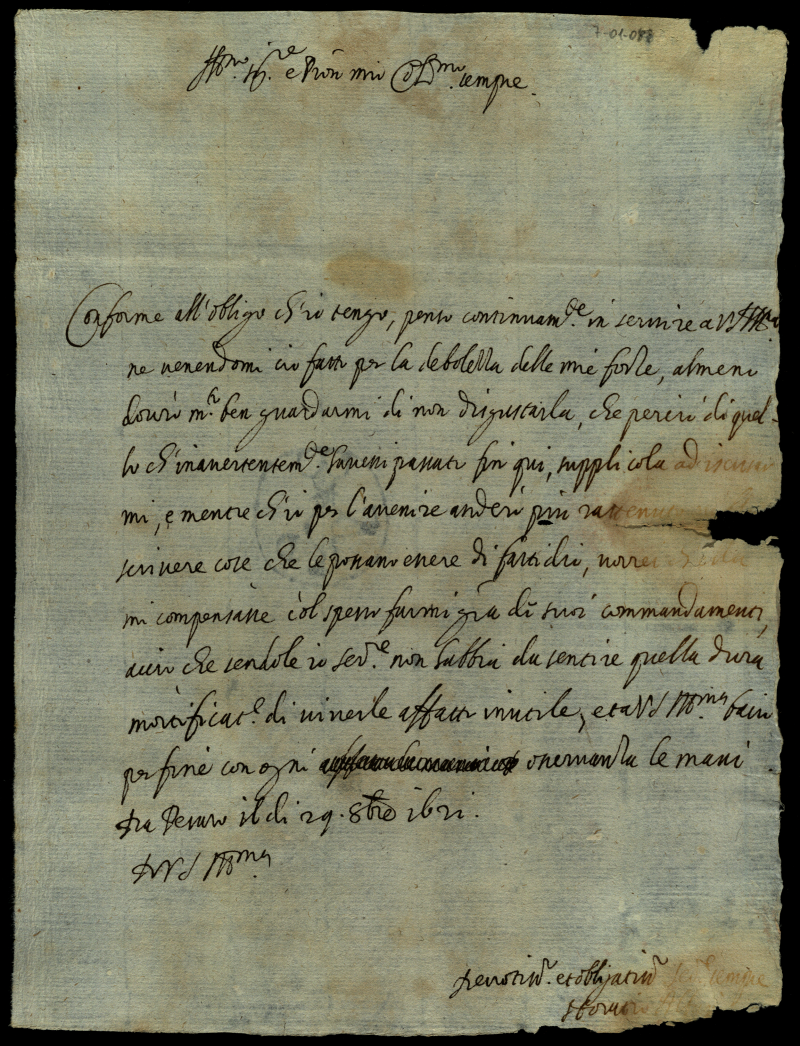 7-01-088
Ill.mo Sig.re e Pron mio Col.mo sempre.
Conforme all'obligo ch'io tengo, penso continuam.te in servire a VS Ill.ma
ne venendomi ciò fatto per la debolezza delle mie forze, almeno
dovrò m.to ben guardarmi di non disgustarla, che perciò di quel-
lo ch'inavertentem.te havessi passato fin qui, supplicola ad iscusar
mi, e mentre ch'io per l'avenire anderò più rattenuto
scrivere cose che le possano essere di fastidio, vorrei
mi compensasse col spesso farmi gra di suoi commandamenti,
acciò che sendole io Ser.re non habbia da sentire quella dura
mortificat.e di viverle affatto inutile, et a VS Ill.ma bacio
per fine con ogni osservanza le mani
Da Pesaro il di 29. 8bre 1621.
Di VS Ill.ma
Devotiss.o et obligatiss.o Ser.re sempre
Horatio